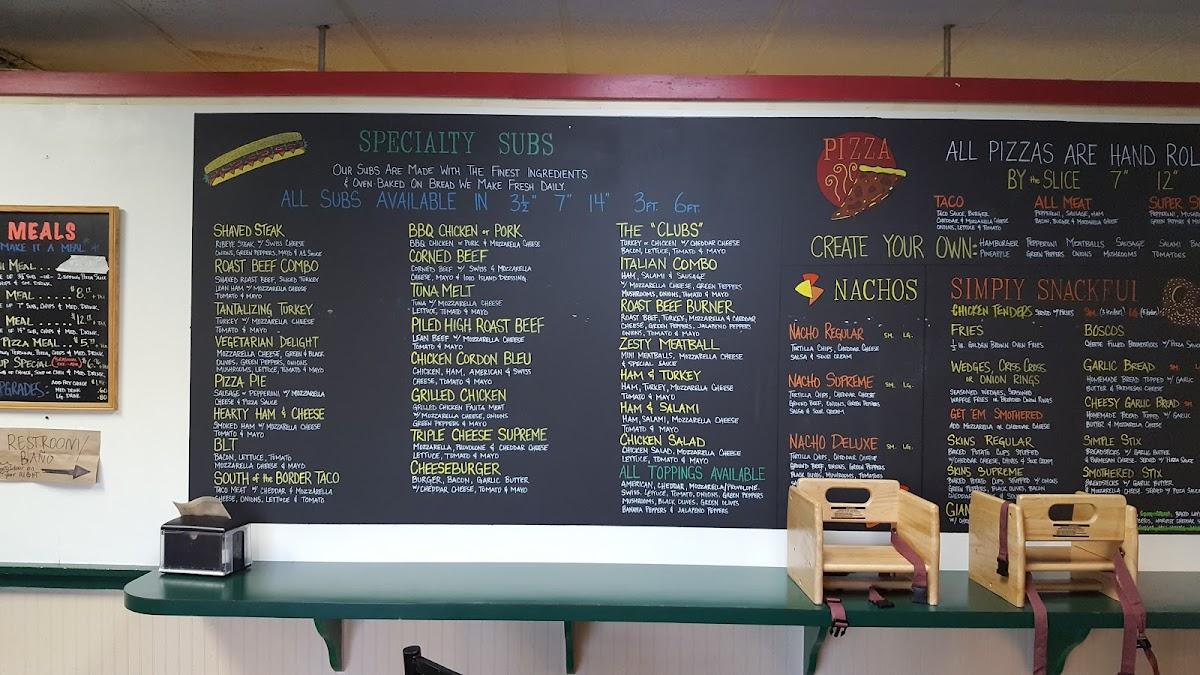 MEALS
MAKE IT A MEAL
MEAL
MEAL
PIZZA MEAL
RESTROOM/
BAÑO
SPECIALTY SUBS
OUR SUBS ARE MADE WITH THE FINEST INGREDIENTS
& OVEN-BAKED ON BREAD WE MAKE FRESH DAILY.
ALL SUBS AVAILABLE IN 3½" 7" 14" 3FT. 6FT.
SHAVED STEAK
RIBEYE STEAK W/ SWISS CHEESE
ONIONS, GREEN PEPPERS, MAYO & A1 SAUCE
ROAST BEEF COMBO
SHAVED ROAST BEEF, SLICED TURKEY
LEAN HAM W/ MOZZARELLA CHEESE
TOMATO & MAYO
TANTALIZING TURKEY
TURKEY W/ MOZZARELLA CHEESE
TOMATO & MAYO
VEGETARIAN DELIGHT
MOZZARELLA CHEESE, GREEN & BLACK
OLIVES, GREEN PEPPERS, ONIONS
MUSHROOMS, LETTUCE, TOMATO & MAYO
PIZZA PIE
SAUSAGE OR PEPPERONI W/ MOZZARELLA
CHEESE & PIZZA SAUCE
HEARTY HAM & CHEESE
SMOKED HAM W/ MOZZARELLA CHEESE
TOMATO & MAYO
BLT
BACON, LETTUCE, TOMATO
MOZZARELLA CHEESE & MAYO
SOUTH OF THE BORDER TACO
TACO MEAT W/ CHEDDAR & MOZZARELLA
CHEESE, ONIONS, LETTUCE & TOMATO
BBQ CHICKEN OR PORK
BBQ CHICKEN OR PORK & MOZZARELLA CHEESE
CORNED BEEF
CORNED BEEF W/ SWISS & MOZZARELLA
CHEESE, MAYO & 1000 ISLAND DRESSING
TUNA MELT
TUNA W/ MOZZARELLA CHEESE
LETTUCE & MAYO
PILED HIGH ROAST BEEF
LEAN BEEF W/ MOZZARELLA CHEESE
TOMATO & MAYO
CHICKEN CORDON BLEU
CHICKEN, HAM, AMERICAN & SWISS
CHEESE, TOMATO & MAYO
GRILLED CHICKEN
GRILLED CHICKEN FAJITA MEAT
W/ MOZZARELLA CHEESE, ONIONS
GREEN PEPPERS & MAYO
TRIPLE CHEESE SUPREME
MOZZARELLA, PROVOLONE & CHEDDAR CHEESE
LETTUCE, TOMATO & MAYO
CHEESEBURGER
BURGER, BACON, GARLIC BUTTER
W/CHEDDAR CHEESE, TOMATO & MAYO
THE "CLUBS"
TURKEY OR CHICKEN W/ CHEDDAR CHEESE
BACON, LETTUCE, TOMATO & MAYO
ITALIAN COMBO
HAM, SALAMI & SAUSAGE
W/ MOZZARELLA CHEESE, GREEN PEPPERS
MUSHROOMS, ONIONS, TOMATO & MAYO
ROAST BEEF BURNER
ROAST BEEF, TURKEY, MOZZARELLA & CHEDDAR
CHEESE, GREEN PEPPERS, JALAPENO PEPPERS
ONIONS, TOMATO & MAYO
ZESTY MEATBALL
MINI MEATBALLS, MOZZARELLA CHEESE
& SPECIAL SAUCE
HAM & TURKEY
HAM, TURKEY, MOZZARELLA CHEESE
TOMATO & MAYO
HAM & SALAMI
HAM, SALAMI, MOZZARELLA CHEESE
TOMATO & MAYO
CHICKEN SALAD
CHICKEN SALAD, MOZZARELLA CHEESE
LETTUCE, TOMATO & MAYO
ALL TOPPINGS AVAILABLE
AMERICAN, CHEDDAR, MOZZARELLA, PROVOLONE
SWISS, LETTUCE, TOMATO, ONIONS, GREEN PEPPERS
MUSHROOMS, BLACK OLIVES, GREEN OLIVES
BANANA PEPPERS & JALAPENO PEPPERS
PIZZA
ALL PIZZAS ARE HAND ROL
BY THE SLICE 7" 12"
TACO
TACO SAUCE, BURGER
CHEDDAR & MOZZARELLA CHEESE
ONIONS, LETTUCE & TOMATO
ALL MEAT
PEPPERONI, SAUSAGE, HAM
BACON, BURGER & MOZZARELLA CHEESE
SUPER
CREATE YOUR OWN:
HAMBURGER PEPPERONI MEATBALLS SAUSAGE SALAMI
PINEAPPLE GREEN PEPPERS ONIONS MUSHROOMS TOMATOES
NACHOS
NACHO REGULAR SM. LG.
TORTILLA CHIPS, CHEDDAR CHEESE
SALSA & SOUR CREAM
NACHO SUPREME SM. LG.
TORTILLA CHIPS, CHEDDAR CHEESE
GROUND BEEF, ONIONS, GREEN PEPPERS
SALSA & SOUR CREAM
NACHO DELUXE SM. LG.
TORTILLA CHIPS, CHEDDAR CHEESE
GROUND BEEF, ONIONS, GREEN PEPPERS
SIMPLY SNACKFUL
CHICKEN TENDERS SERVED W/ FRIES
FRIES
½ LB. GOLDEN BROWN OVEN FRIES
WEDGES, CRISS CROSS
OR ONION RINGS
SEASONED WEDGES, SEASONED
WAFFLE FRIES OR BREADED ONION RINGS
GET 'EM SMOTHERED
ADD MOZZARELLA OR CHEDDAR CHEESE
SKINS REGULAR
BAKED POTATO CUPS STUFFED
W/CHEDDAR CHEESE, CHIVES & SOUR CREAM
SKINS SUPREME
BAKED POTATO CUPS STUFFED W/ ONIONS
GREEN PEPPERS, BLACK OLIVES, BACON
BOSCOS
CHEESE FILLED BREADSTICKS W/ PIZZA SAUCE
GARLIC BREAD SM.
HOMEMADE BREAD TOPPED W/ GARLIC
BUTTER & PARMESAN CHEESE
CHEESY GARLIC BREAD SM.
HOMEMADE BREAD TOPPED W/ GARLIC
BUTTER & MOZZARELLA CHEESE
SIMPLE STIX
BREADSTICKS W/ GARLIC BUTTER
& PARMESAN CHEESE. SERVED W/ PIZZA SAUCE
SMOTHERED STIX
BREADSTICKS W/ GARLIC BUTTER
& MOZZARELLA CHEESE. SERVED W/ PIZZA SAUCE